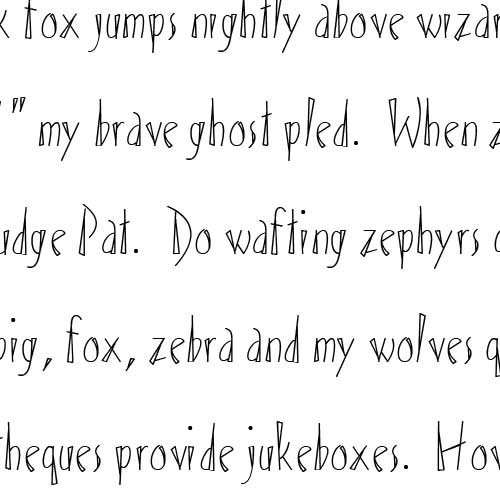 k fox jumps nightly above wizar
" my brave ghost pled. When z
udge Pat. Do wafting zephyrs
big, fox, zebra and my wolves q
theques provide jukeboxes. How